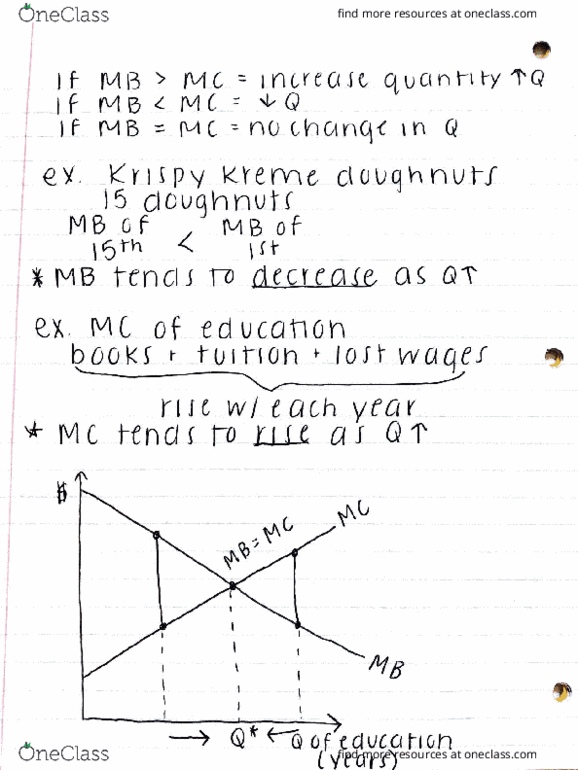 OneClass
find more resources at oneclass.com
If MB > MC = increase quantity ↑Q
If MB < MC = ↓ Q
If MB = MC = no change in Q
ex. Krispy Kreme doughnuts
15 doughnuts
MB of 15th < MB of 1st
* MB tends to decrease as Q↑
ex. MC of education
books + tuition + lost wages
rise w/ each year
* MC tends to rise as Q↑
$
MC
MB = MC
MB
→ Q* ← Q of education
(years)
OneClass
find more resources at oneclass.com